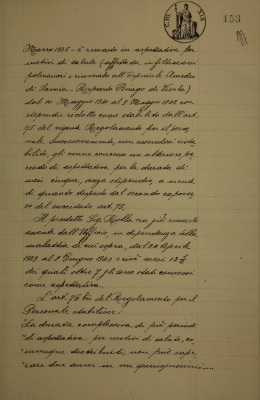 153
Marzo 1935 - è rimasto in aspettativa per
motivi di salute (affetto da infiltrazioni
polmonari e ricoverato all'Ospedale
di Pavia - Reparto Borgo di
dal 10 Maggio 1941 al 9 Maggio 1942 con
stipendio ridotto come stabilito dall'art.
75 del vigente Regolamento per il perso-
nale. Successivamente, non essendosi rista-
bilito, gli venne concesso un ulteriore pe-
riodo di aspettativa per la durata di
mesi cinque, senza stipendio, a norma
di quanto disposto dal secondo capover-
so del succitato art. 75.
Il predetto Sig. era già rimasto
assente dall'Ufficio, in dipendenza della
malattia di cui sopra, dal 24 Aprile
1939 al 9 Giugno 1940 - cioè mesi 13 ½
dei quali oltre 7 gli sono stati concessi
come aspettativa.
L'art. 76 bis del Regolamento per il
Personale stabilisce:
"La durata complessiva di più periodi
di aspettativa per motivi di salute, co-
munque distribuiti, non può supe-
rare due anni in un quinquennio....